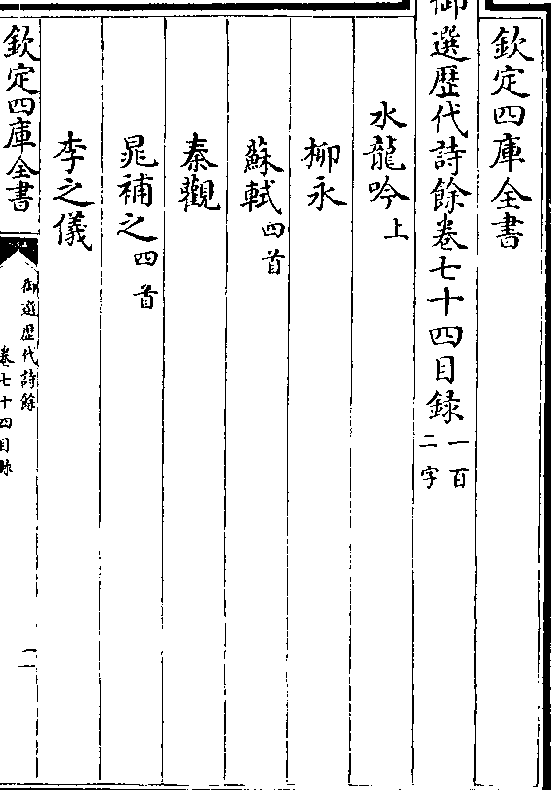 欽定四庫全書
御選歴代詩餘卷七十四目録一百二字
水龍吟上
柳永
蘇軾四首
秦觀
晁補之四首
李之儀
欽定四庫全書
御選歴代詩餘
卷七十四目録
一